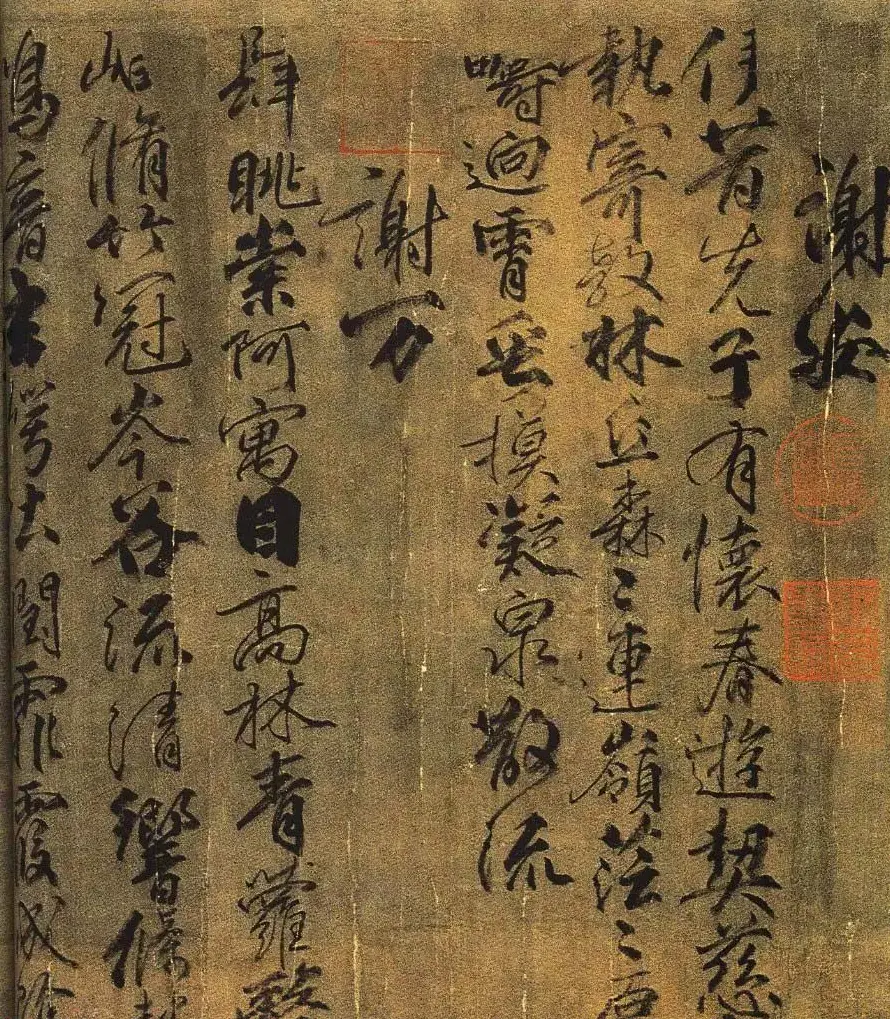 謝安
伊昔先子有懷春遊契慈
執寄敖林丘森〻連嶺茫〻原
疇迥霄垂模凝泉散流
謝万
肆眺崇阿寓目高林青蘿翳
岫脩竹冠岑谷流清響條鼓
鳴音玄崿吐潤霏霞成陰